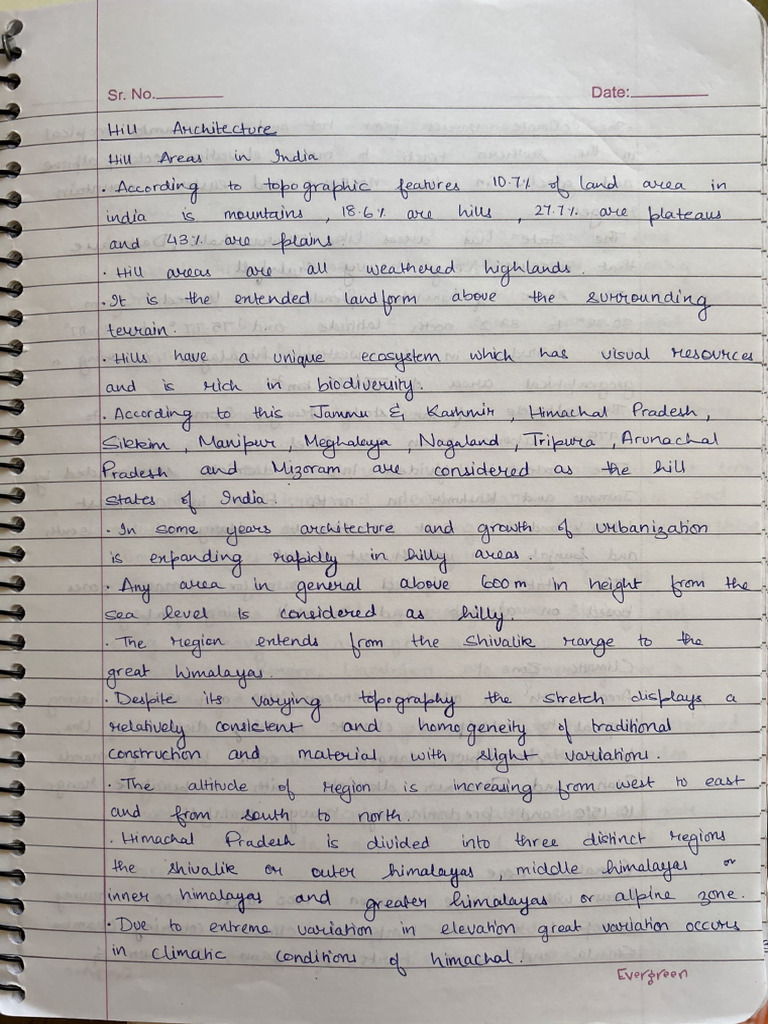 Sr. No.
Date:
Hill Architecture
Hill Areas in India
· According to topographic features 10.7% of land area in
india is mountains , 18.6% are hills , 27.7% are plateaus
and 43% are plains.
· Hill areas are all weathered highlands .
· It is the extended landform above the surrounding
terrain .
· Hills have a unique ecosystem which has visual resources
and is rich in biodiversity.
· According to this Jammu & Kashmir , Himachal Pradesh ,
Sikkim , Manipur , Meghalaya , Nagaland , Tripura , Arunachal
Pradesh and Mizoram are considered as the hill
states of India .
· In some years architecture and growth of urbanization
is expanding rapidly in hilly areas .
· Any area in general above 600 m in height from the
sea level is considered as hilly.
· The region extends from the Shivalik range to the
great himalayas.
· Despite its varying topography the stretch displays a
relatively consistent and homogeneity of traditional
construction and material with slight variations .
· The altitude of region is increasing from west to east
and from south to north.
· Himachal Pradesh is divided into three distinct regions
the shivalik or outer himalayas , middle himalayas or
inner himalayas and greater himalayas or alpine zone.
· Due to extreme variation in elevation great variation occurs
in climatic conditions of himachal .
Evergreen